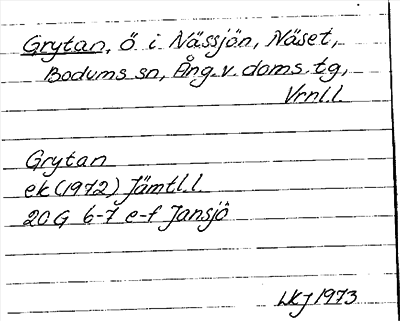 Grytan, Ö i Nässjön, Näset,
Bodums sn, Ång. v. doms. tg,
Vrnl.l.
Grytan
ek (1972) Jämtl.l.
20G 6-7 e-f Jansjö
LKJ 1973